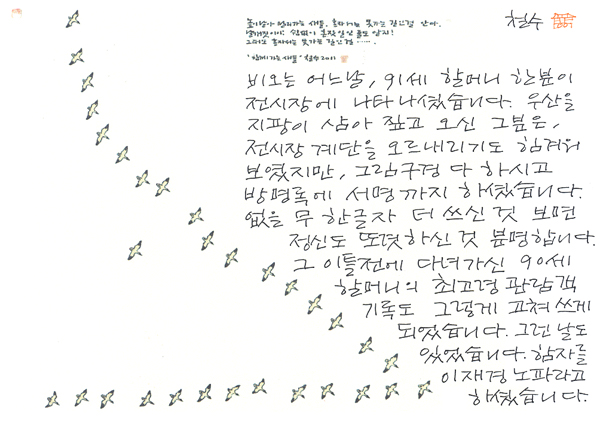 철수
높이 날아 멀리 가는 새들. 혼자서는 못가는 길인걸 안다.
그래서 혼자서는 못가는 길인걸…….
"함께가는 새들" 철수 2011
비오는 어느날, 91세 할머니 한분이
전시장에 나타나셨습니다. 우산을
지팡이 삼아 짚고 오신 그분은,
전시장 계단을 오르내리기도 힘겨워
보였지만, 그림구경 다 하시고
방명록에 서명까지 하셨습니다.
없을 무 한글자 더 쓰신 것 보면
정신도 또렷하신 것 분명합니다.
그 이틀전에 다녀가신 90세
할머니의 최고령 관람객
기록도 그렇게 고쳐 쓰게
되었습니다. 그런 날도
있었습니다. 함자를
이재경 노파라고
하셨습니다.